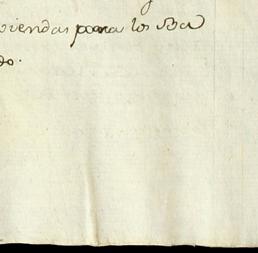 viendas para los Ba
do.